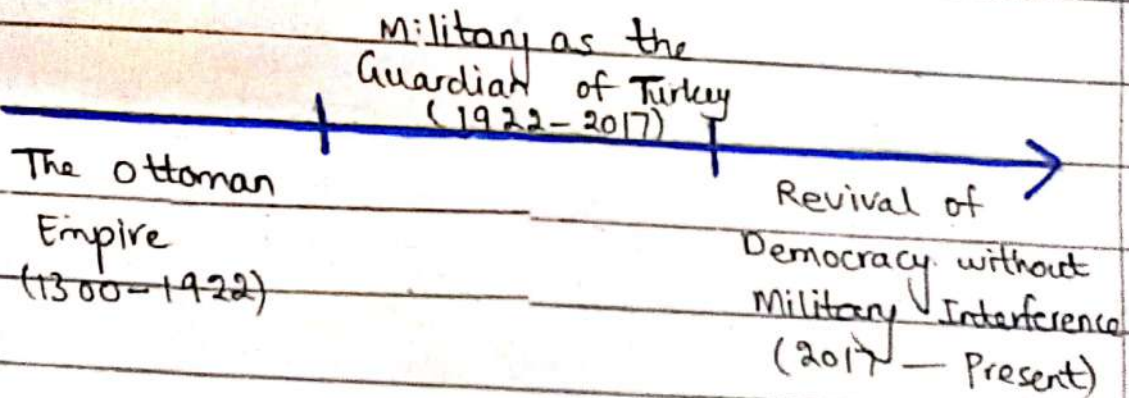 Military as the
Guardian of Turkey
(1922-2017)
The Ottoman
Empire
(1300-1922)
Revival of
Democracy without
Military Interference
(2017 - Present)